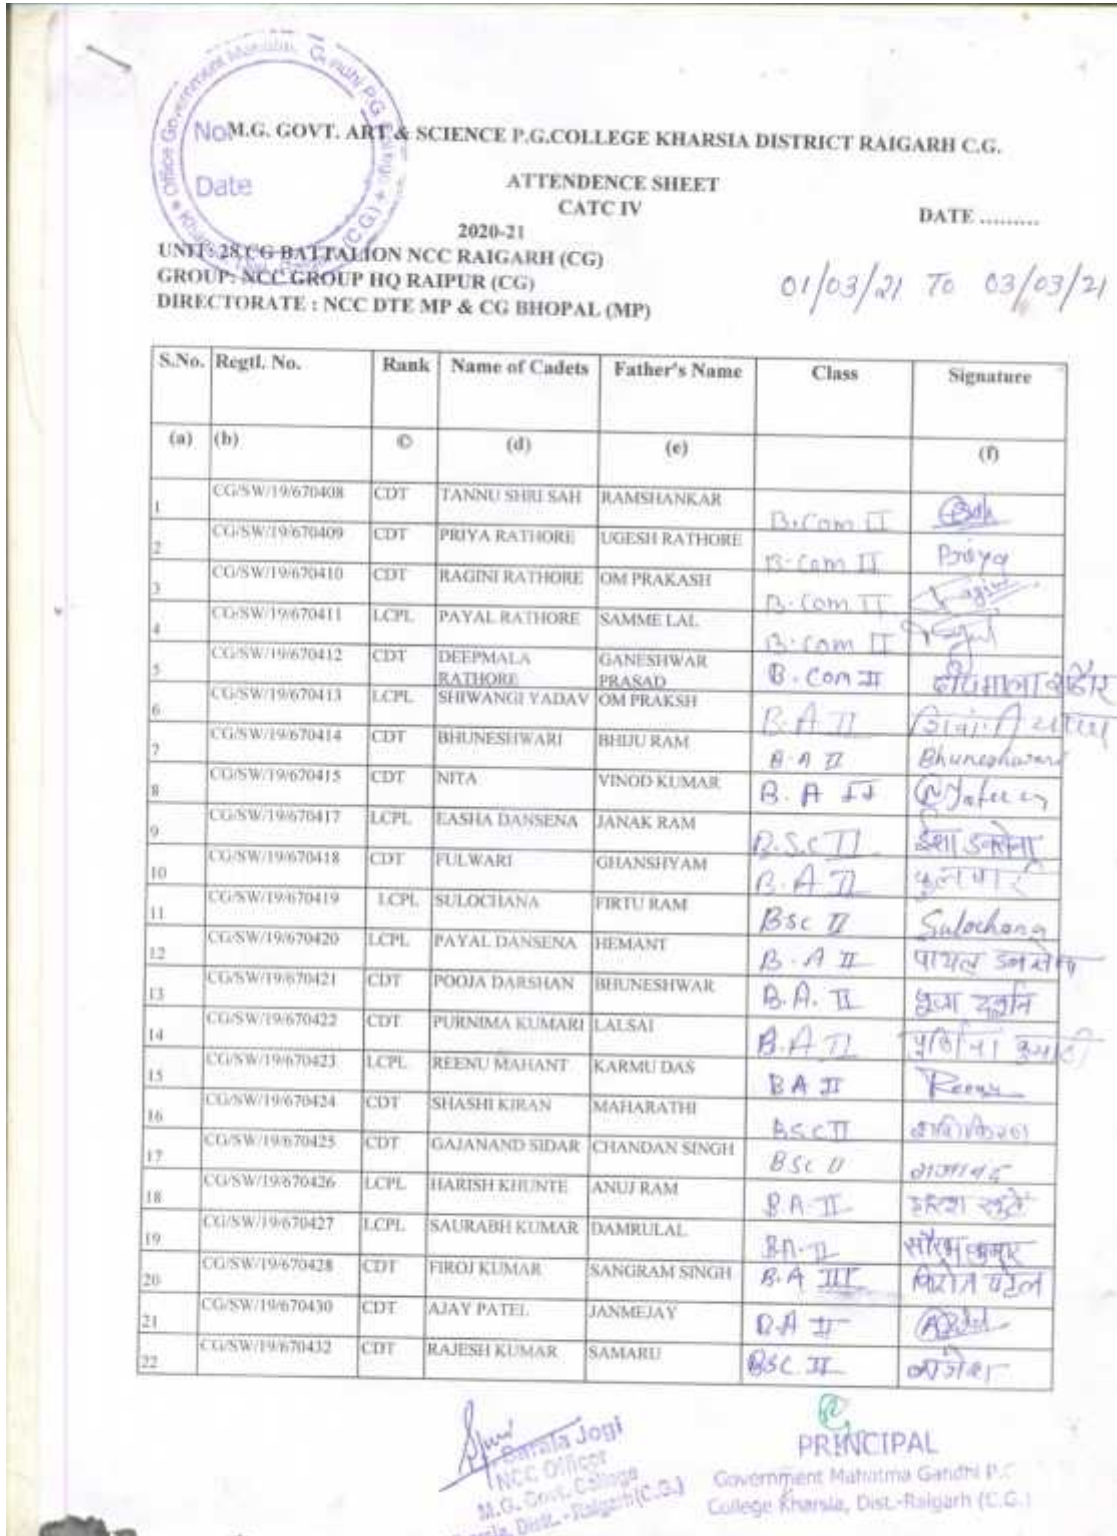 Office Government Mahatma Gandhi P.G. College
Kharsia (C.G.)
No.
Date
M.G. GOVT. ART & SCIENCE P.G.COLLEGE KHARSIA DISTRICT RAIGARH C.G.
ATTENDENCE SHEET
CATC IV
DATE .........
2020-21
UNIT: 28 CG BATTALION NCC RAIGARH (CG)
GROUP: NCC GROUP HQ RAIPUR (CG)
DIRECTORATE : NCC DTE MP & CG BHOPAL (MP)
01/03/21 To 03/03/21
S.No. Regtl. No. Rank Name of Cadets Father's Name Class Signature
(a) (b) © (d) (e) (f)
1 CG/SW/19/670408 CDT TANNU SHRI SAH RAMSHANKAR B.Com II
2 CG/SW/19/670409 CDT PRIYA RATHORE UGESH RATHORE B.Com II Priya
3 CG/SW/19/670410 CDT RAGINI RATHORE OM PRAKASH B.Com II Ragini
4 CG/SW/19/670411 LCPL PAYAL RATHORE SAMME LAL B.Com II
5 CG/SW/19/670412 CDT DEEPMALA RATHORE GANESHWAR PRASAD B.Com II दीपमाला राठौर
6 CG/SW/19/670413 LCPL SHIWANGI YADAV OM PRAKSH B.A II
7 CG/SW/19/670414 CDT BHUNESHWARI BHIJU RAM B.A II Bhuneshwari
8 CG/SW/19/670415 CDT NITA VINOD KUMAR B.A II
9 CG/SW/19/670417 LCPL EASHA DANSENA JANAK RAM B.Sc II ईशा डनसेना
10 CG/SW/19/670418 CDT FULWARI GHANSHYAM B.A II फुलवारी
11 CG/SW/19/670419 LCPL SULOCHANA FIRTU RAM Bsc II Sulochana
12 CG/SW/19/670420 LCPL PAYAL DANSENA HEMANT B.A II पायल डनसेना
13 CG/SW/19/670421 CDT POOJA DARSHAN BHUNESHWAR B.A. II पूजा दर्शन
14 CG/SW/19/670422 CDT PURNIMA KUMARI LALSAI B.A II पुर्णिमा कुमारी
15 CG/SW/19/670423 LCPL REENU MAHANT KARMU DAS BA II Reenu
16 CG/SW/19/670424 CDT SHASHI KIRAN MAHARATHI BSc II शशिकिरण
17 CG/SW/19/670425 CDT GAJANAND SIDAR CHANDAN SINGH BSc II गजानंद
18 CG/SW/19/670426 LCPL HARISH KHUNTE ANUJ RAM B.A-II हरिश खुंटे
19 CG/SW/19/670427 LCPL SAURABH KUMAR DAMRULAL BA-II सौरभ कुमार
20 CG/SW/19/670428 CDT FIROJ KUMAR SANGRAM SINGH B.A III फिरोज पटेल
21 CG/SW/19/670430 CDT AJAY PATEL JANMEJAY B.A II
22 CG/SW/19/670432 CDT RAJESH KUMAR SAMARU BSC II राजेश
Jogi
NCC Officer
M.G. Govt. College
Dist.-Raigarh (C.G.)
PRINCIPAL
Government Mahatma Gandhi P.G
College Kharsia, Dist.-Raigarh (C.G.)